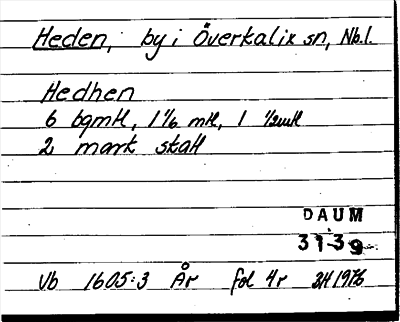 Heden, by i Överkalix sn, Nb.l.
Hedhen
6 bgmtl, 1 1/6 mtl, 1 1/2 mtl
2 mark skatt
DAUM
3139
Vb 1605:3 År fol 4r 1976